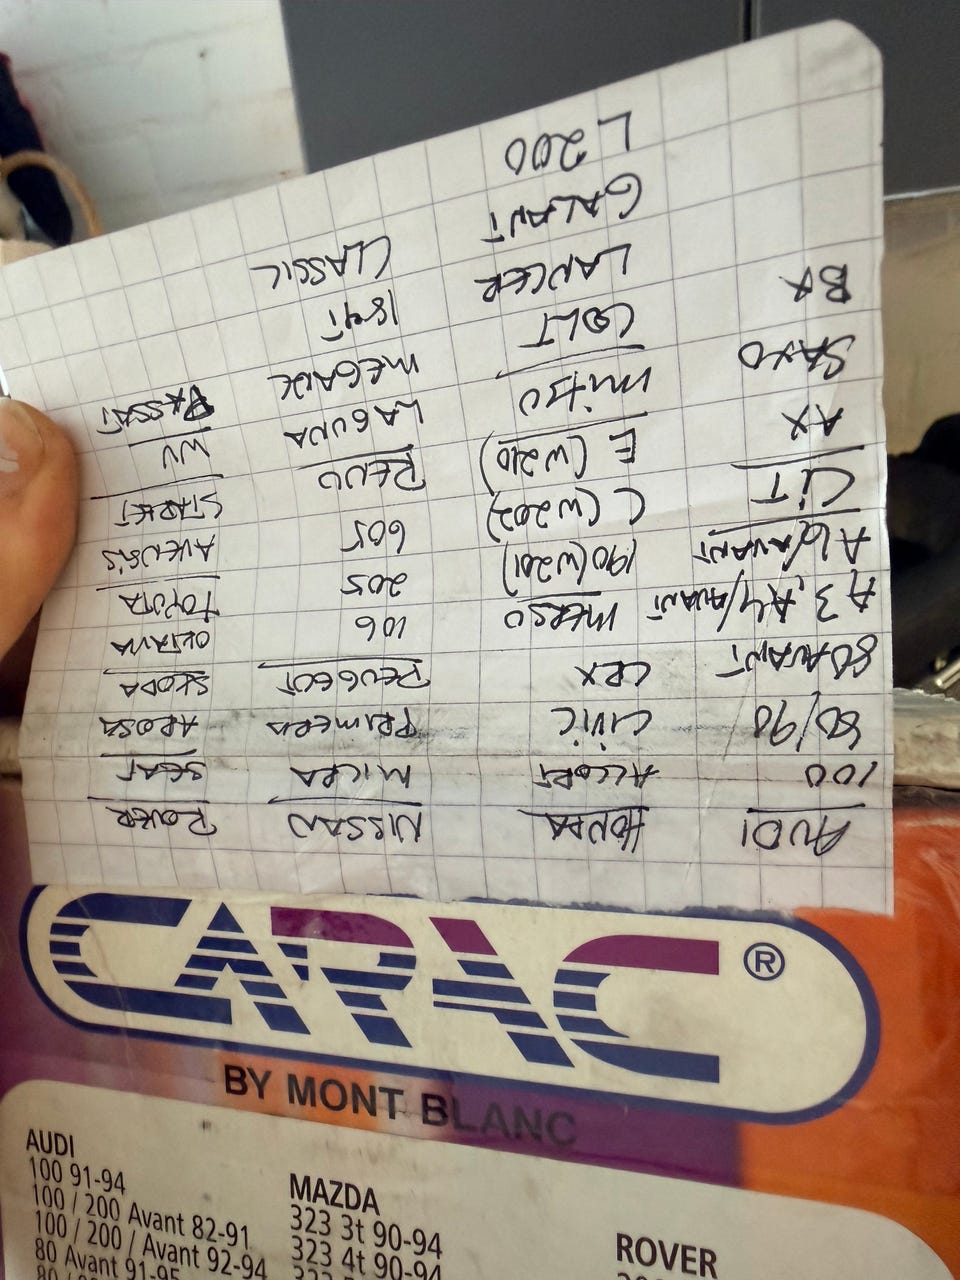 AUDI
100
80/90
80 AVANT
A3, A4/AVANT
A6/AVANT
CiT
AX
SAXO
BX
HONDA
ACCORT
CiViC
CRX
MERSU
190 (W201)
C (W202)
E (W210)
MITSU
COLT
LANCER
GALANT
L200
NISSAN
MICRA
PRIMERA
PEUGEOT
106
205
605
RENU
LAGUNA
MEGANE
CLASSIC
ROVER
SEAT
AROSA
SKODA
OKTAVIA
TOYOTA
AVENSIS
STARLET
WV
PASSAT
CAPAC ®
BY MONT BLANC
AUDI
100 91-94
100 / 200 Avant 82-91
100 / 200 / Avant 92-94
80 Avant 91-95
MAZDA
323 3t 90-94
323 4t 90-94
ROVER